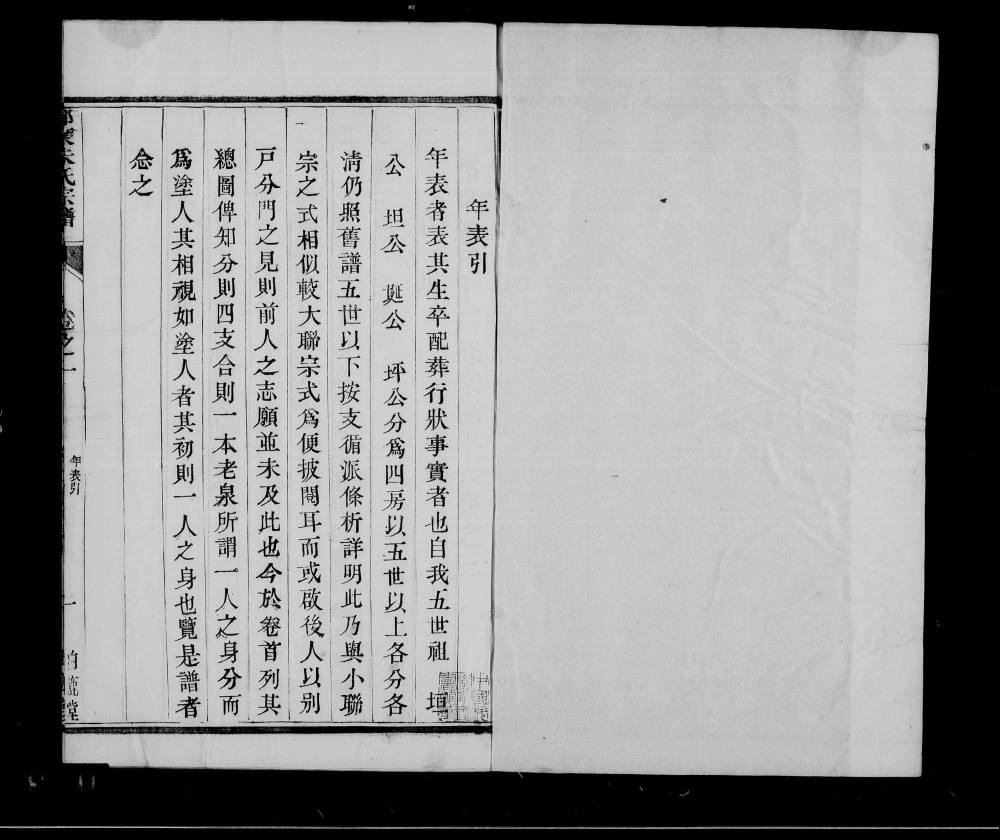 年表引
年表者表其生卒配葬行狀事實者也自我五世祖 垣
公 坦公 埏公 坪公分爲四房以五世以上各分各
淸仍照舊譜五世以下按支循派條析詳明此乃與小聯
宗之式相似較大聯宗式爲便披閱耳而或啟後人以別
戸分門之見則前人之志願並未及此也今於卷首列其
總圖俾知分則四支合則一本老泉所謂一人之身分而
爲塗人其相視如塗人者其初則一人之身也覽是譜者
念之
氏宗譜
卷之一
年表引
一
白鹿堂